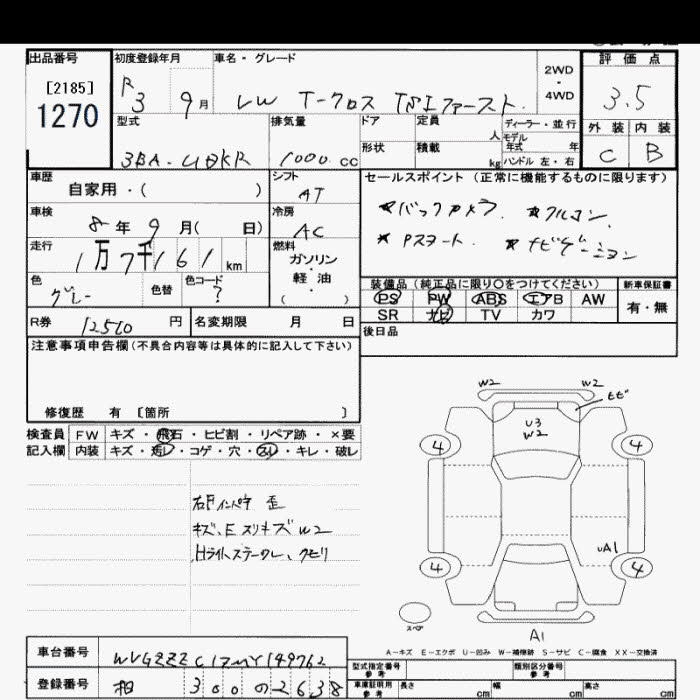 出品番号 [2185] 1270
初度登録年月 R3 9月
車名・グレード VW T-クロス TSIファースト
2WD・4WD
評価点 3.5
外装 C 内装 B
型式 3BA-
排気量 1000 cc
ドア 形状
定員 人 積載 kg
ディーラー・並行
モデル年式 年
ハンドル 左・右
車歴 自家用・( )
シフト AT
車検 8年 9月( 日)
冷房 AC
走行 1万7千161km
燃料 ガソリン・軽油・( )
色 グレー 色替 色コード ?
セールスポイント(正常に機能するものに限ります)
★バックカメラ ★アルコン
★Pスタート ★ナビゲーション
装備品(純正品に限り〇をつけてください) 新車保証書
PS PW ABS エアB AW 有・無
SR ナビ TV カワ
後日品
R券 12510円 名変期限 月 日
注意事項申告欄(不具合内容等は具体的に記入して下さい)
修復歴 有 〔箇所 〕
検査員 FW キズ・飛石・ヒビ割・リペア跡・×要
記入欄 内装 キズ・汚レ・コゲ・穴・スレ・キレ・破レ
歪
キズ、E スリキズ W2
Hライト クモリ
W2 W2
U3
W2
4 4
UA1
4 4
スペア
A1
A-キズ E-エクボ U-凹み W-補修跡 S-サビ C-腐食 XX-交換済
車台番号
登録番号 相 300 の 2638
型式指定番号 参考 類別区分番号 参考
車庫証明用 参考 長さ cm 幅 cm 高さ cm